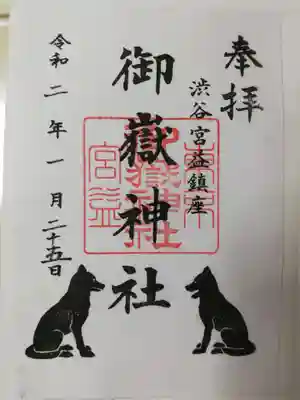 奉拝
渋谷宮益鎮座
御嶽神社
令和二年一月二十五日
東京
宮益
御嶽神社